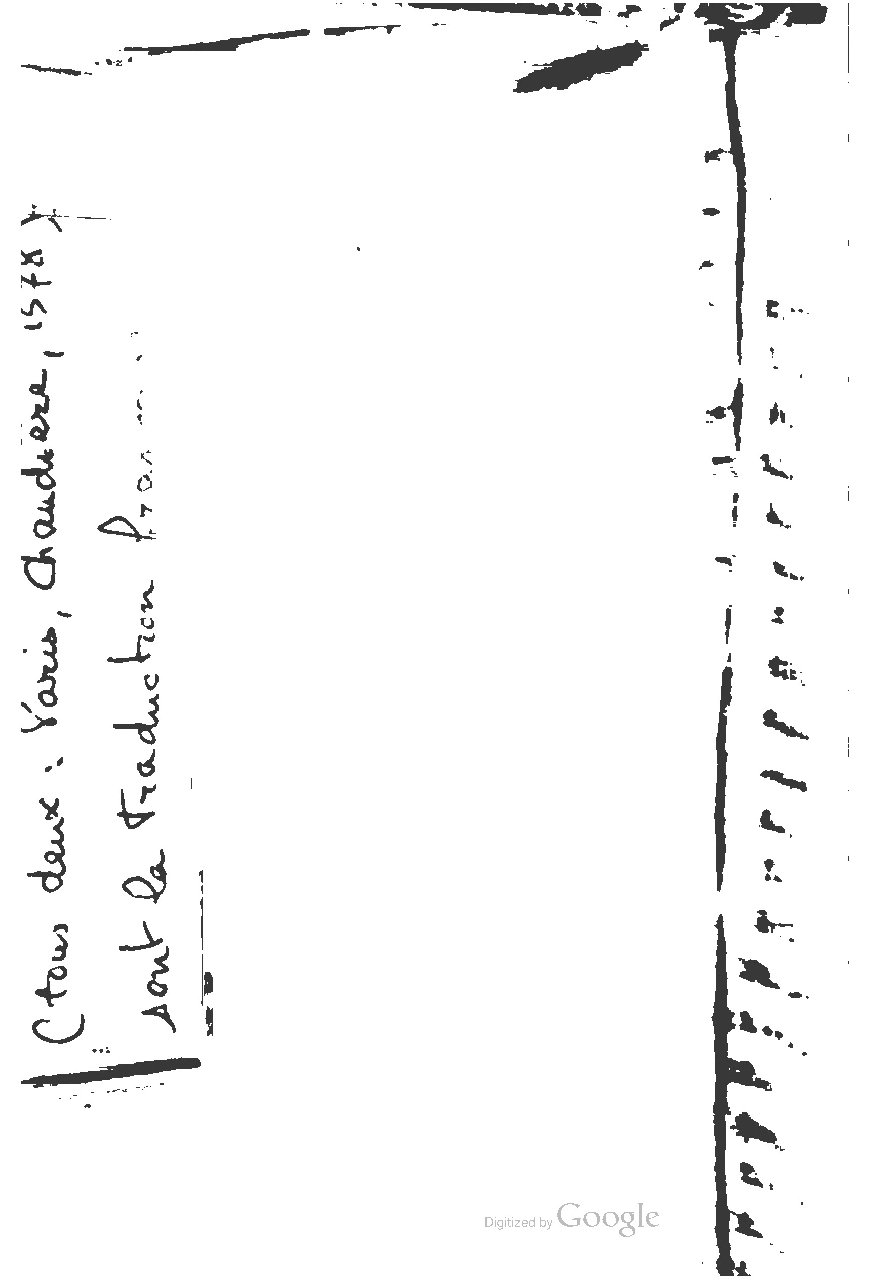 (tous deux : Paris, Chaudière, 1578)
sont la traduction
Digitized by Google